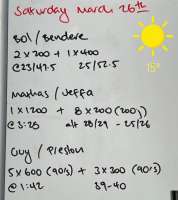 Saturday March 26th
Sol / Bendere
2 x 200 + 1 x 400
@ 23/47.5 25/52.5
15°
Mathas / Jeffa
1 x 1200 + 8 x 200 (200j)
@ 3:23 alt 28/29 - 25/26
Guy / Preston
5 x 600 (90's) + 3 x 300 (90's)
@ 1:42 39-40